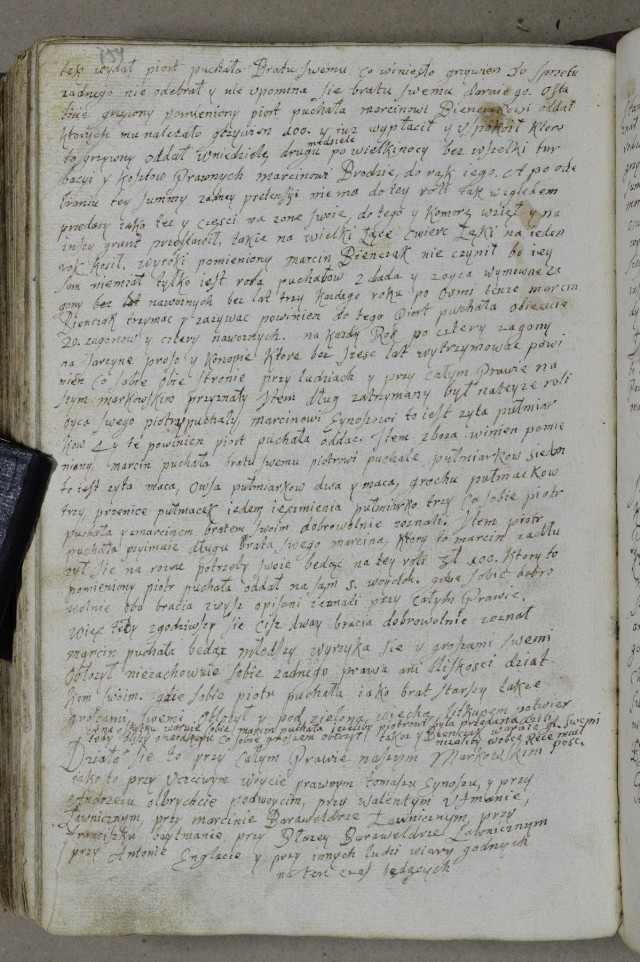 też wydał piort puchała Bratu swemu co winiosło grzywien do sprzetu
zadnego nie odebrał y nie vpomina się bratu swemu
grzywny pomieniony piort puchała marcinowi Bienciakowi oddał
ktorych mu nalezało grzywien 100. y iuz wypłacił y vspokoił ktore
to grzywny oddał wniedzielę drugą po wielkinocy bez wszelki tur
bacyi y kosztow Prawnych marcinowi Brodzie, do rąk iego. A po ode
braniu tey summy zadney pretensyi niema do tey roli tak względem
przedazy iako tez y części na zone swoie, do tego y komorę wziął y na
inszy grunt przestawił, takze na wielki Łące cwierc Łąki na ieden
rok kosił. wyroki pomieniony marcin Bienczak nie czynił bo iey
sam niemiał tylko iest rola puchałow z dada y zoyca wymowne za
gony bez nawoznych bez lat trzy kazdego roku po osmi tenze marcin
Bienczak trzymac y zazywac powinien do tego Piort puchała obiecuie
20. zagonow y cztery nawoznych. na kazdi Rok po cztery zagony
na Jarzyne proso y konopie ktore bez szesc lat wytrzymowac powi
nien co sobie obie stronie przy ludziach y przy całym Prawie na
szym markowskim przyznały Item dług zatrzymany był nateyze roli
oyca swego piotr puchały, marcinowi Synoszowi to iest zyta pułmiar
kow 4 y te powinien piort puchała oddac. Item zboza winien pomie
niony, marcin puchała bratu swemu piotrowi puchale pułmiarkow siedm
to iest zyta maca, owsa pułmiarkow dwa y maca, grochu pułmackow
trzy przenice pułmacek ieden ięczmienia pułmiarko trzy co sobie piotr
puchała y zmarcinem bratem swoim dobrowolnie zeznali. Item piotr
puchała przyimuie długu Brata swego marcina, ktory to marcin zadłu
zył się na rozne potrzeby swoie będąc na tey roli zł 100. ktory to
pomieniony piotr puchała oddał na sam s. woyciech. gdzie sobie dobro
wolnie oba bracia zwysz opisani zeznali przy całym Prawie.
Więc tedy zgodziwszy się cisz dway bracia dobrowolnie zeznał
marcin puchała będąc młodszy wyrzyka się y groszami swemi
obłozył niezachownie sobie zadnego prawa ani bliskosci dziat
kom swoim. gdzie sobie piotr puchała iako brat starszy także
groszami swemi obłozył y pod zieloną wiechą litkupem potwier
a na ostatku waruie sobie marcin puchała iezeliby piotrowi była przedania
tedy obcy co sobie groszem obłozył takze y Bienczak
Działo się to przy całym Prawie naszym Markowskim
iako to przy Uczciwym woycie prawnym tomaszu Synoszu, y przy
Andrzeiu olbrychcie podwoycim, przy walentym Vrmanie,
Ławnicznym, przy marcinie Baraweldrze Ławnicznym, przy
Franciszku baytmanie przy Błazey Baraweldrze Ławnicznym
przy Antonie Englacie y przy innych ludzi wiary godnych
na ten czas będących